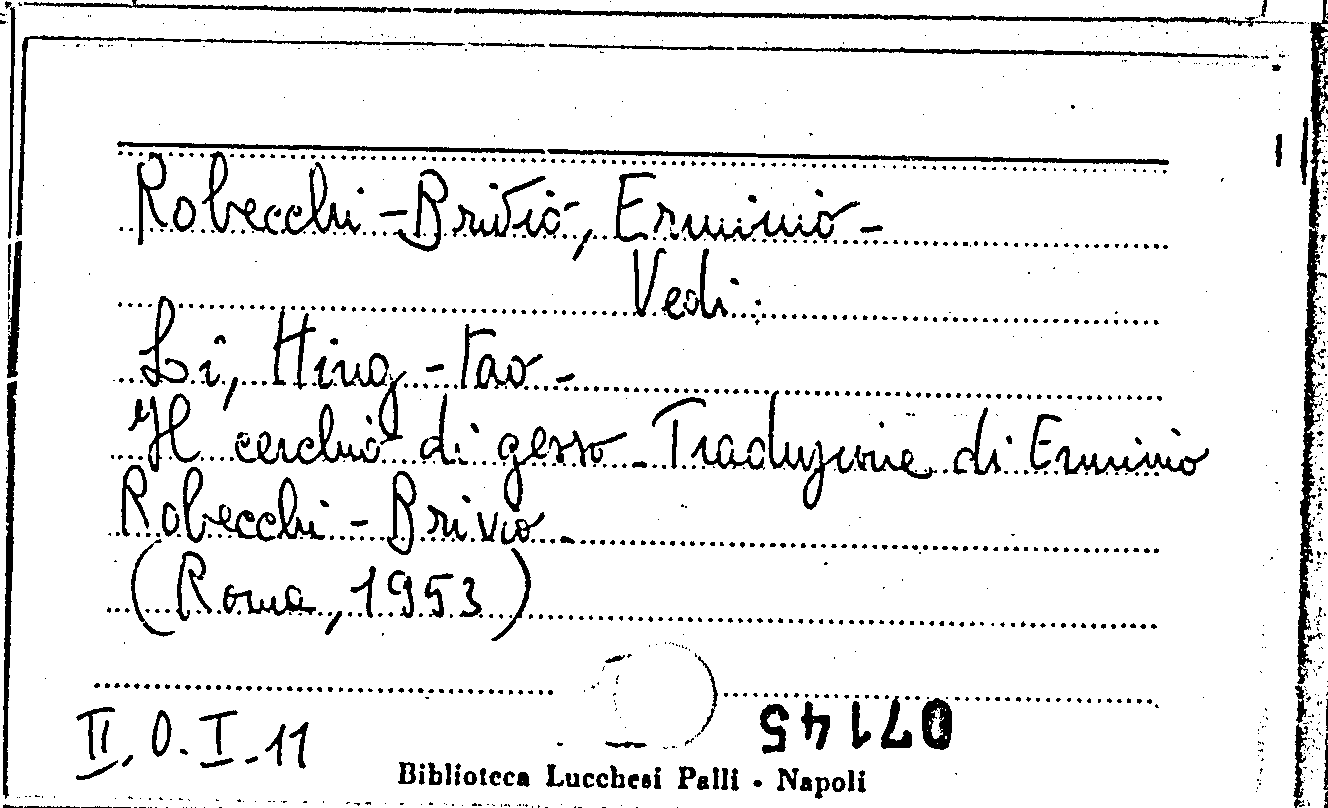 Robecchi-Brivio, Erminio-
Vedi:
Li, Hing-tao-
Il cerchio di gesso-Traduzione di Erminio
Robecchi-Brivio.
(Roma, 1953)
07145
II.O.I.11
Biblioteca Lucchesi Palli - Napoli